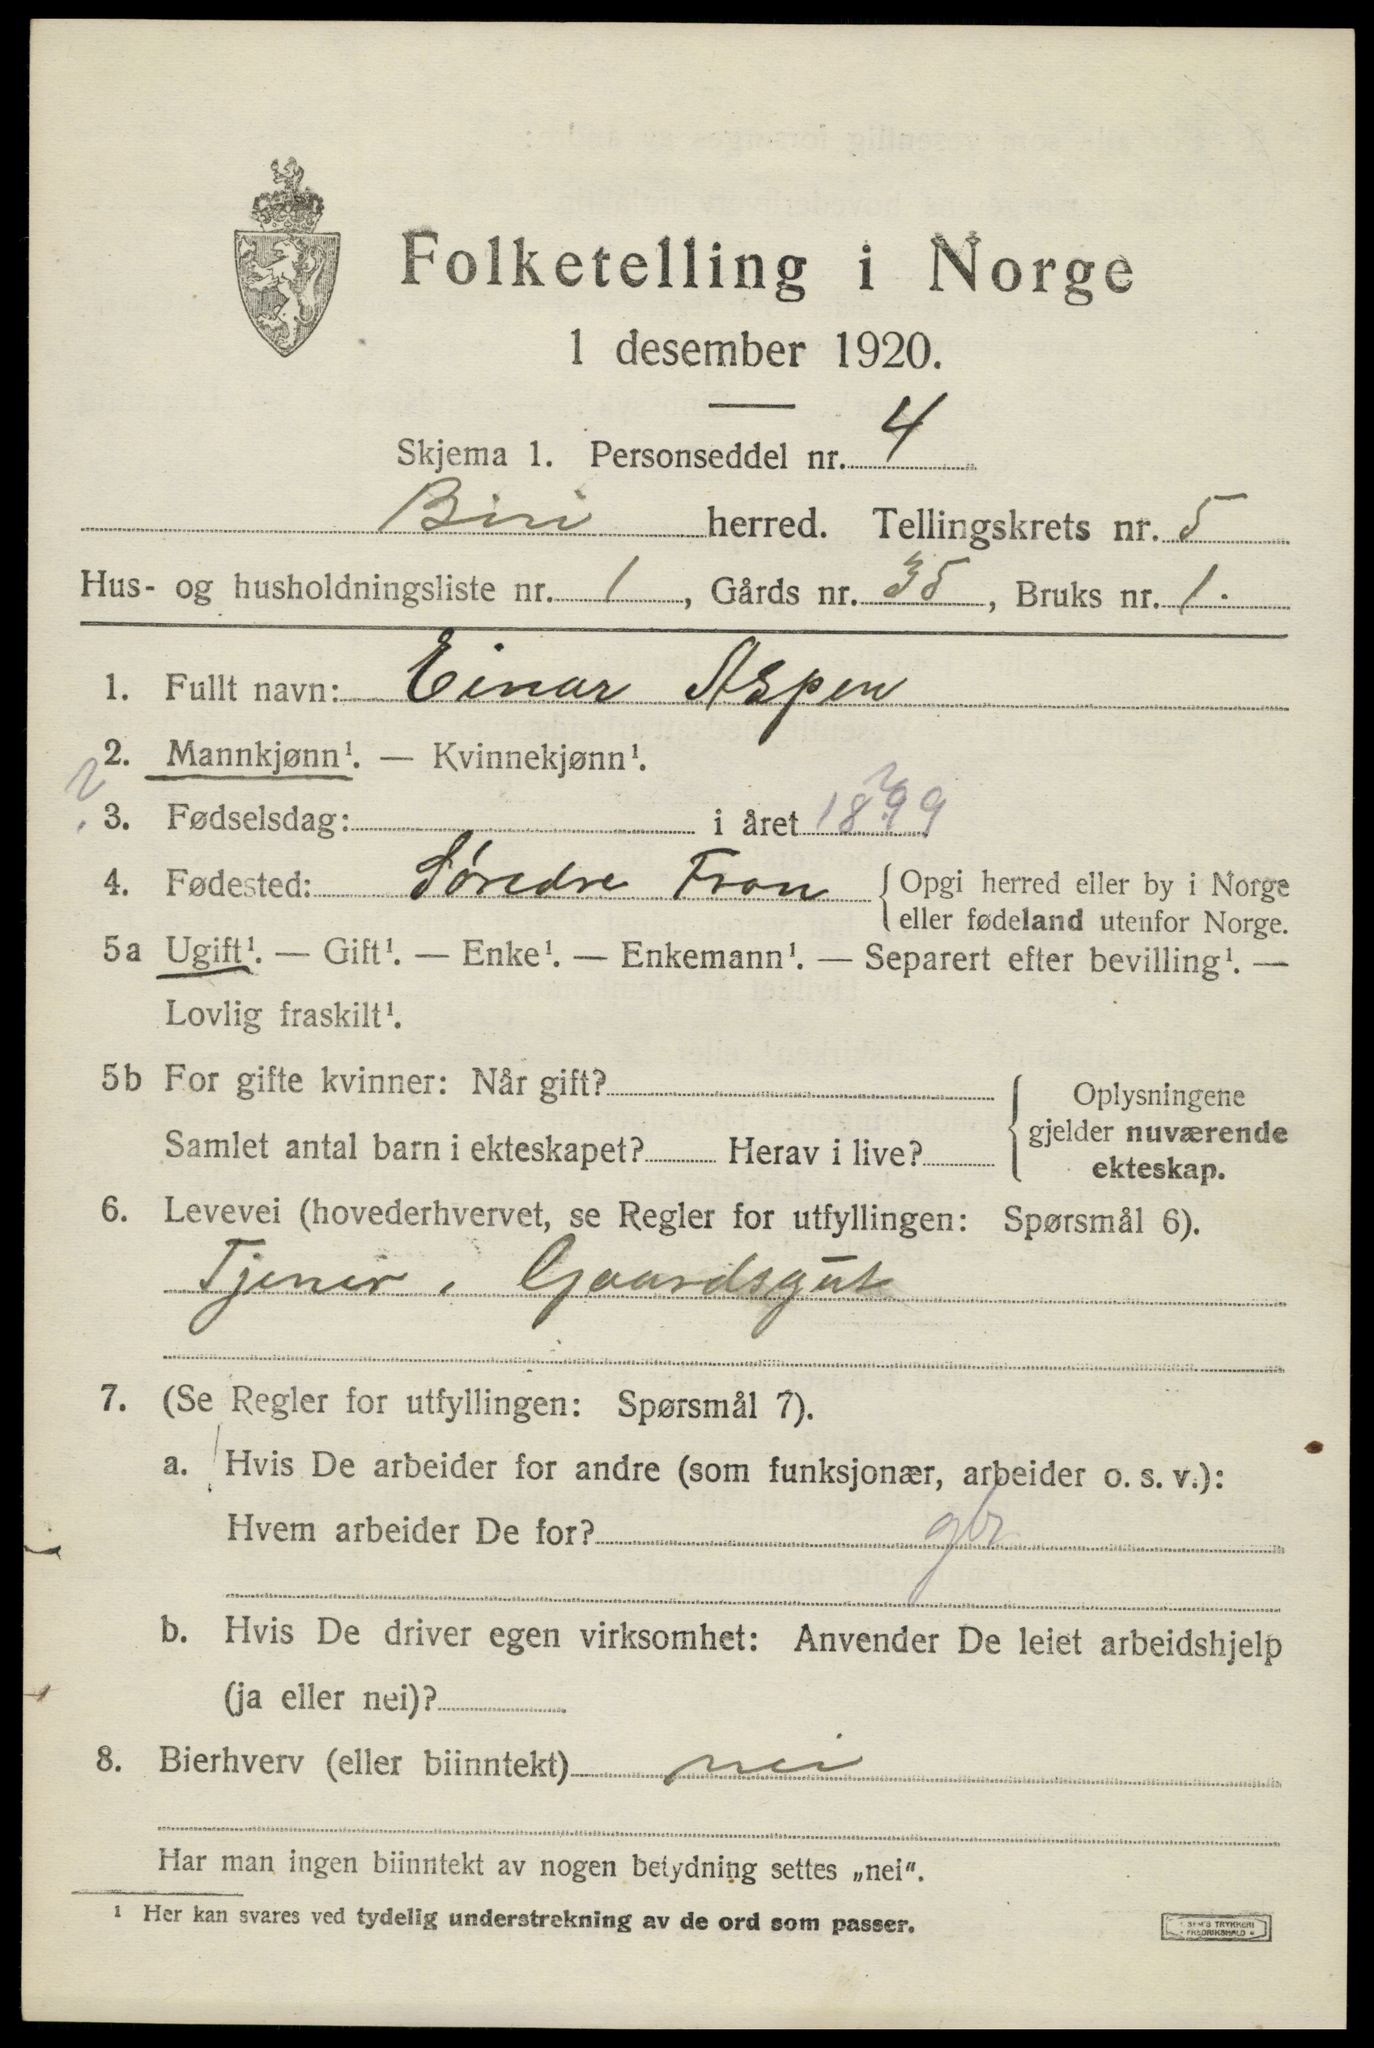 Folketelling i Norge
1 desember 1920.
Skjema 1. Personseddel nr. 4
Biri herred. Tellingskrets nr. 5
Hus- og husholdningsliste nr. 1, Gårds nr. 35, Bruks nr. 1.
1. Fullt navn: Einar Aspen
2. Mannkjønn¹. — Kvinnekjønn¹.
? 3. Fødselsdag: i året 1899
4. Fødested: Søredre Fron {Opgi herred eller by i Norge
eller fødeland utenfor Norge.
5a Ugift¹. — Gift¹. — Enke¹. — Enkemann¹. — Separert efter bevilling¹. —
Lovlig fraskilt¹.
5b For gifte kvinner: Når gift?
Samlet antal barn i ekteskapet? Herav i live?
{Oplysningene
gjelder nuværende
ekteskap.
6. Levevei (hovederhvervet, se Regler for utfyllingen: Spørsmål 6).
Tjener, Gaardsgut
7. (Se Regler for utfyllingen: Spørsmål 7).
a. Hvis De arbeider for andre (som funksjonær, arbeider o. s. v.):
Hvem arbeider De for? gbr
b. Hvis De driver egen virksomhet: Anvender De leiet arbeidshjelp
(ja eller nei)?
8. Bierhverv (eller biinntekt) nei
Har man ingen biinntekt av nogen betydning settes „nei".
¹ Her kan svares ved tydelig understrekning av de ord som passer.
SEM'S TRYKKERI
FREDRIKSHALD